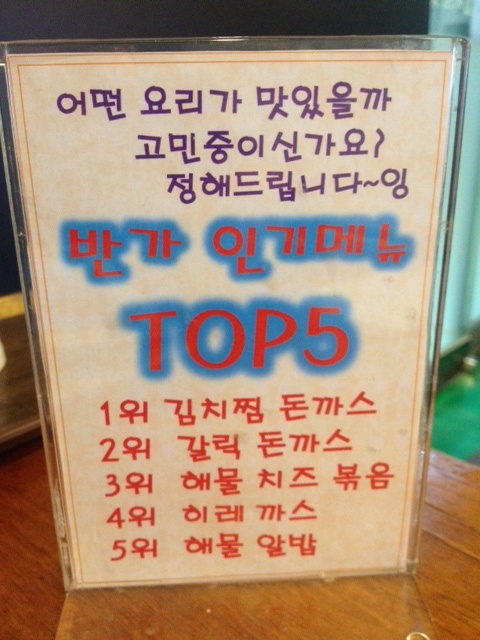 어떤 요리가 맛있을까
고민중이신가요?
정해드립니다~잉
반가 인기메뉴
TOP5
1위 김치찜 돈까스
2위 갈릭 돈까스
3위 해물 치즈 볶음
4위 히레 까스
5위 해물 알밥